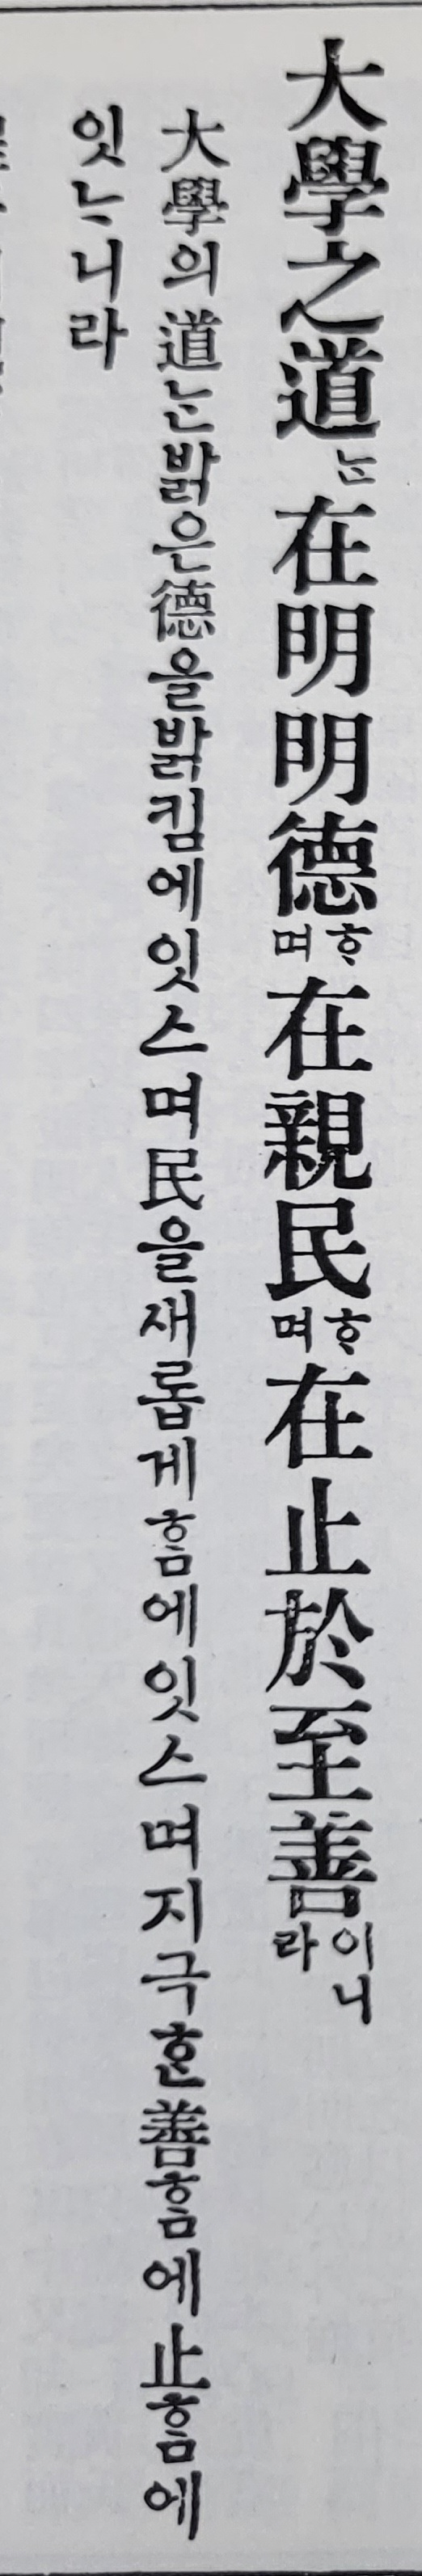 大學之道ᄂᆞᆫ在明明德ᄒᆞ며在親民ᄒᆞ며在止於至善이니라
大學의道ᄂᆞᆫ밝은德을밝킴에잇스며民을새롭게ᄒᆞᆷ에잇스며지극ᄒᆞᆫ善ᄒᆞᆷ에止ᄒᆞᆷ에
잇ᄂᆞ니라